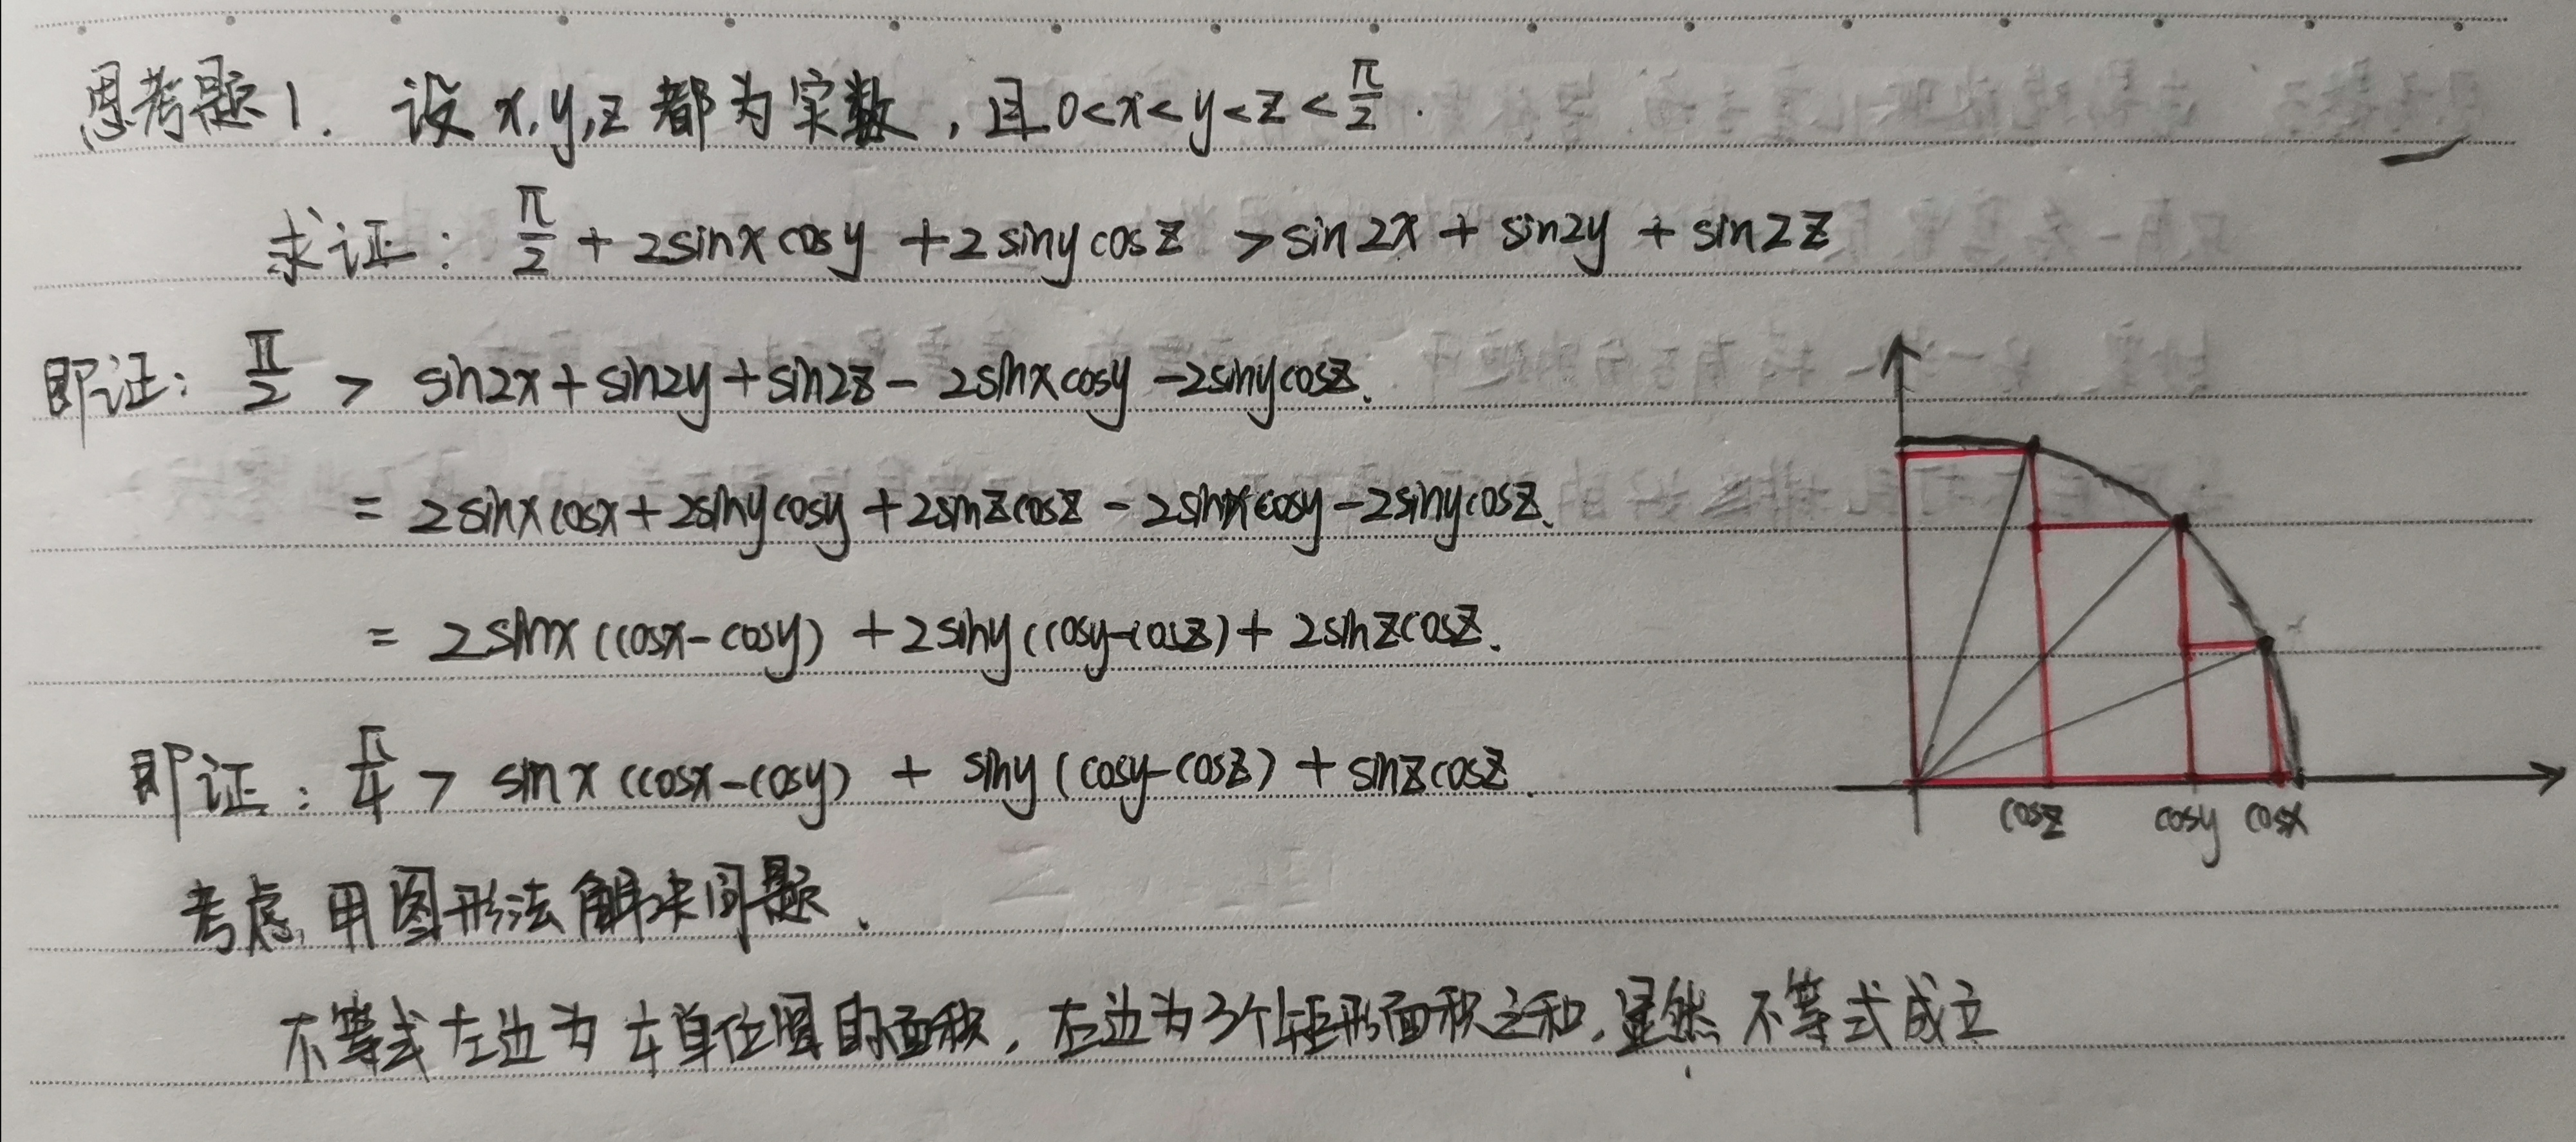 思考题1. 设 x,y,z 都为实数，且 0<x<y<z<π/2.
求证：π/2 + 2sinxcosy + 2sinycosz > sin2x + sin2y + sin2z
即证：π/2 > sin2x + sin2y + sin2z - 2sinxcosy - 2sinycosz.
= 2sinxcosx + 2sinycosy + 2sinzcosz - 2sinxcosy - 2sinycosz.
= 2sinx(cosx-cosy) + 2siny(cosy-cosz) + 2sinzcosz.
即证：π/4 > sinx(cosx-cosy) + siny(cosy-cosz) + sinzcosz.
cosz cosy cosx
考虑用图形法解决问题.
不等式左边为 1/4 单位圆的面积，右边为3个矩形面积之和，显然 不等式成立